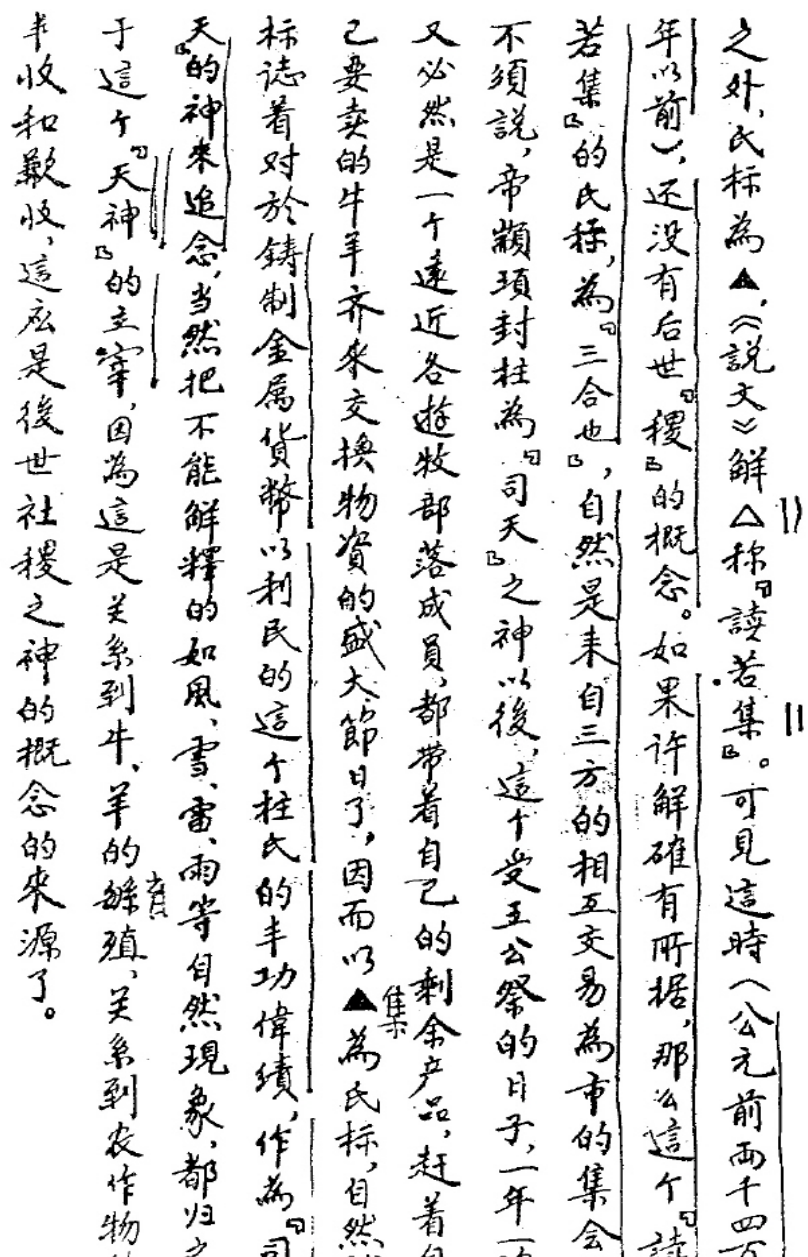 之外，氏标為▲，《説文》解△称『読若集』。可見這時（公元前兩千四百
年以前），还没有后世『稷』的概念。如果许解確有所据，那么這个『読
若集』的氏标，為『三合也』，自然是来自三方的相互交易為市的集会
不須説，帝顓頊封柱為『司天』之神以後，這个受王公祭的日子，一年一
又必然是一个遠近各游牧部落成員，都带着自己的剩余产品，赶着自
己要卖的牛羊齐来交換物資的盛大節日了，因而以▲集為氏标，自然
标誌着对於鋳制金属貨幣以利民的這个柱氏的丰功偉績，作為『司
天』的神来追念，当然把不能解釋的如風、雪、雷、雨等自然現象，都归之
于這个『天神』的主宰，因為這是关系到牛、羊的繇育殖、关系到农作物
丰收和歉收，這应是後世社稷之神的概念的来源了。